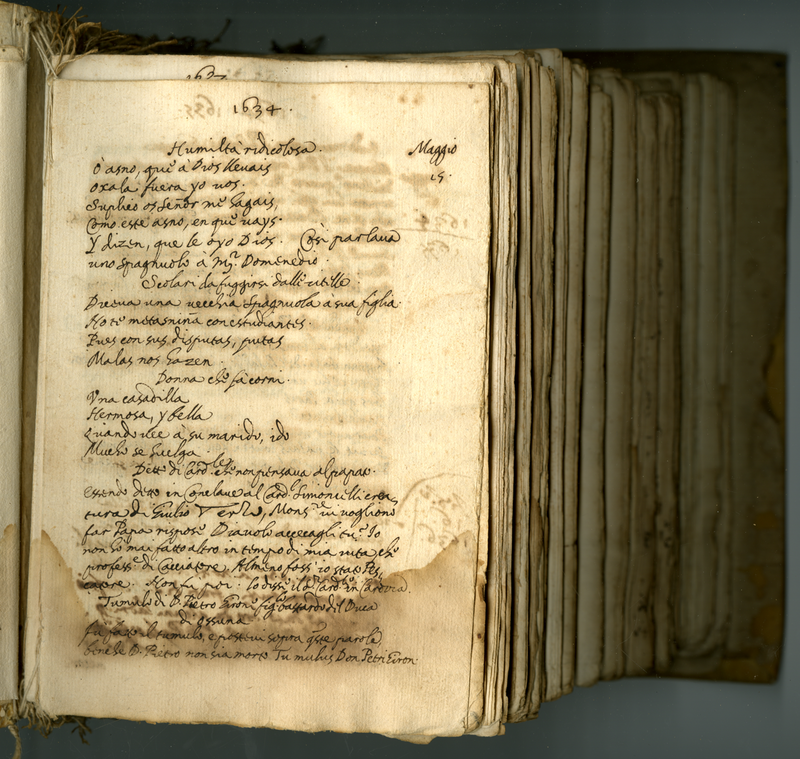 1634.
Humiltà ridicolosa. Maggio
O asno, que à Dios lleuais 15.
oxala fuera yo uos.
Suplico os Señor me hagais,
Como este asno, en que uays.
Y dizen, que le oyo Dios. Così parlaua
uno spagnuolo à Mr. Domenedio.
Scolari da fuggirsi dalle zitelle.
Diceua una uecchia Spagnuola à sua figlia.
No te metas niña con estudiantes.
Pues con sus disputas, putas
Malas nos hazen.
Donna che fà corni.
Vna casadilla
Hermosa, y bella
Quando uee à su marido, ido
Mucho se huelga.
Detto di Card.le che non pensaua al papato.
Essendo detto in Conclaue al Card. Simoncelli crea
tura di Giulio Terzo, Mons.re ui uogliono
far Papa rispose Diauolo acceccagli tu. Io
non hò mai fatto altro in tempo di mia uita che
profess.e di Cacciatore. Almeno foss'io stato Pes
catore. Non fu poi. lo disse il d.o Card.le in
Tumulo di D. Pietro Giron fig.o bastardo del Duca
di Ossuna
fu fatto il tumulo, e posteui sopra q.ste parole
benche D. Pietro non sia morto Tumulus Don Petri Giron